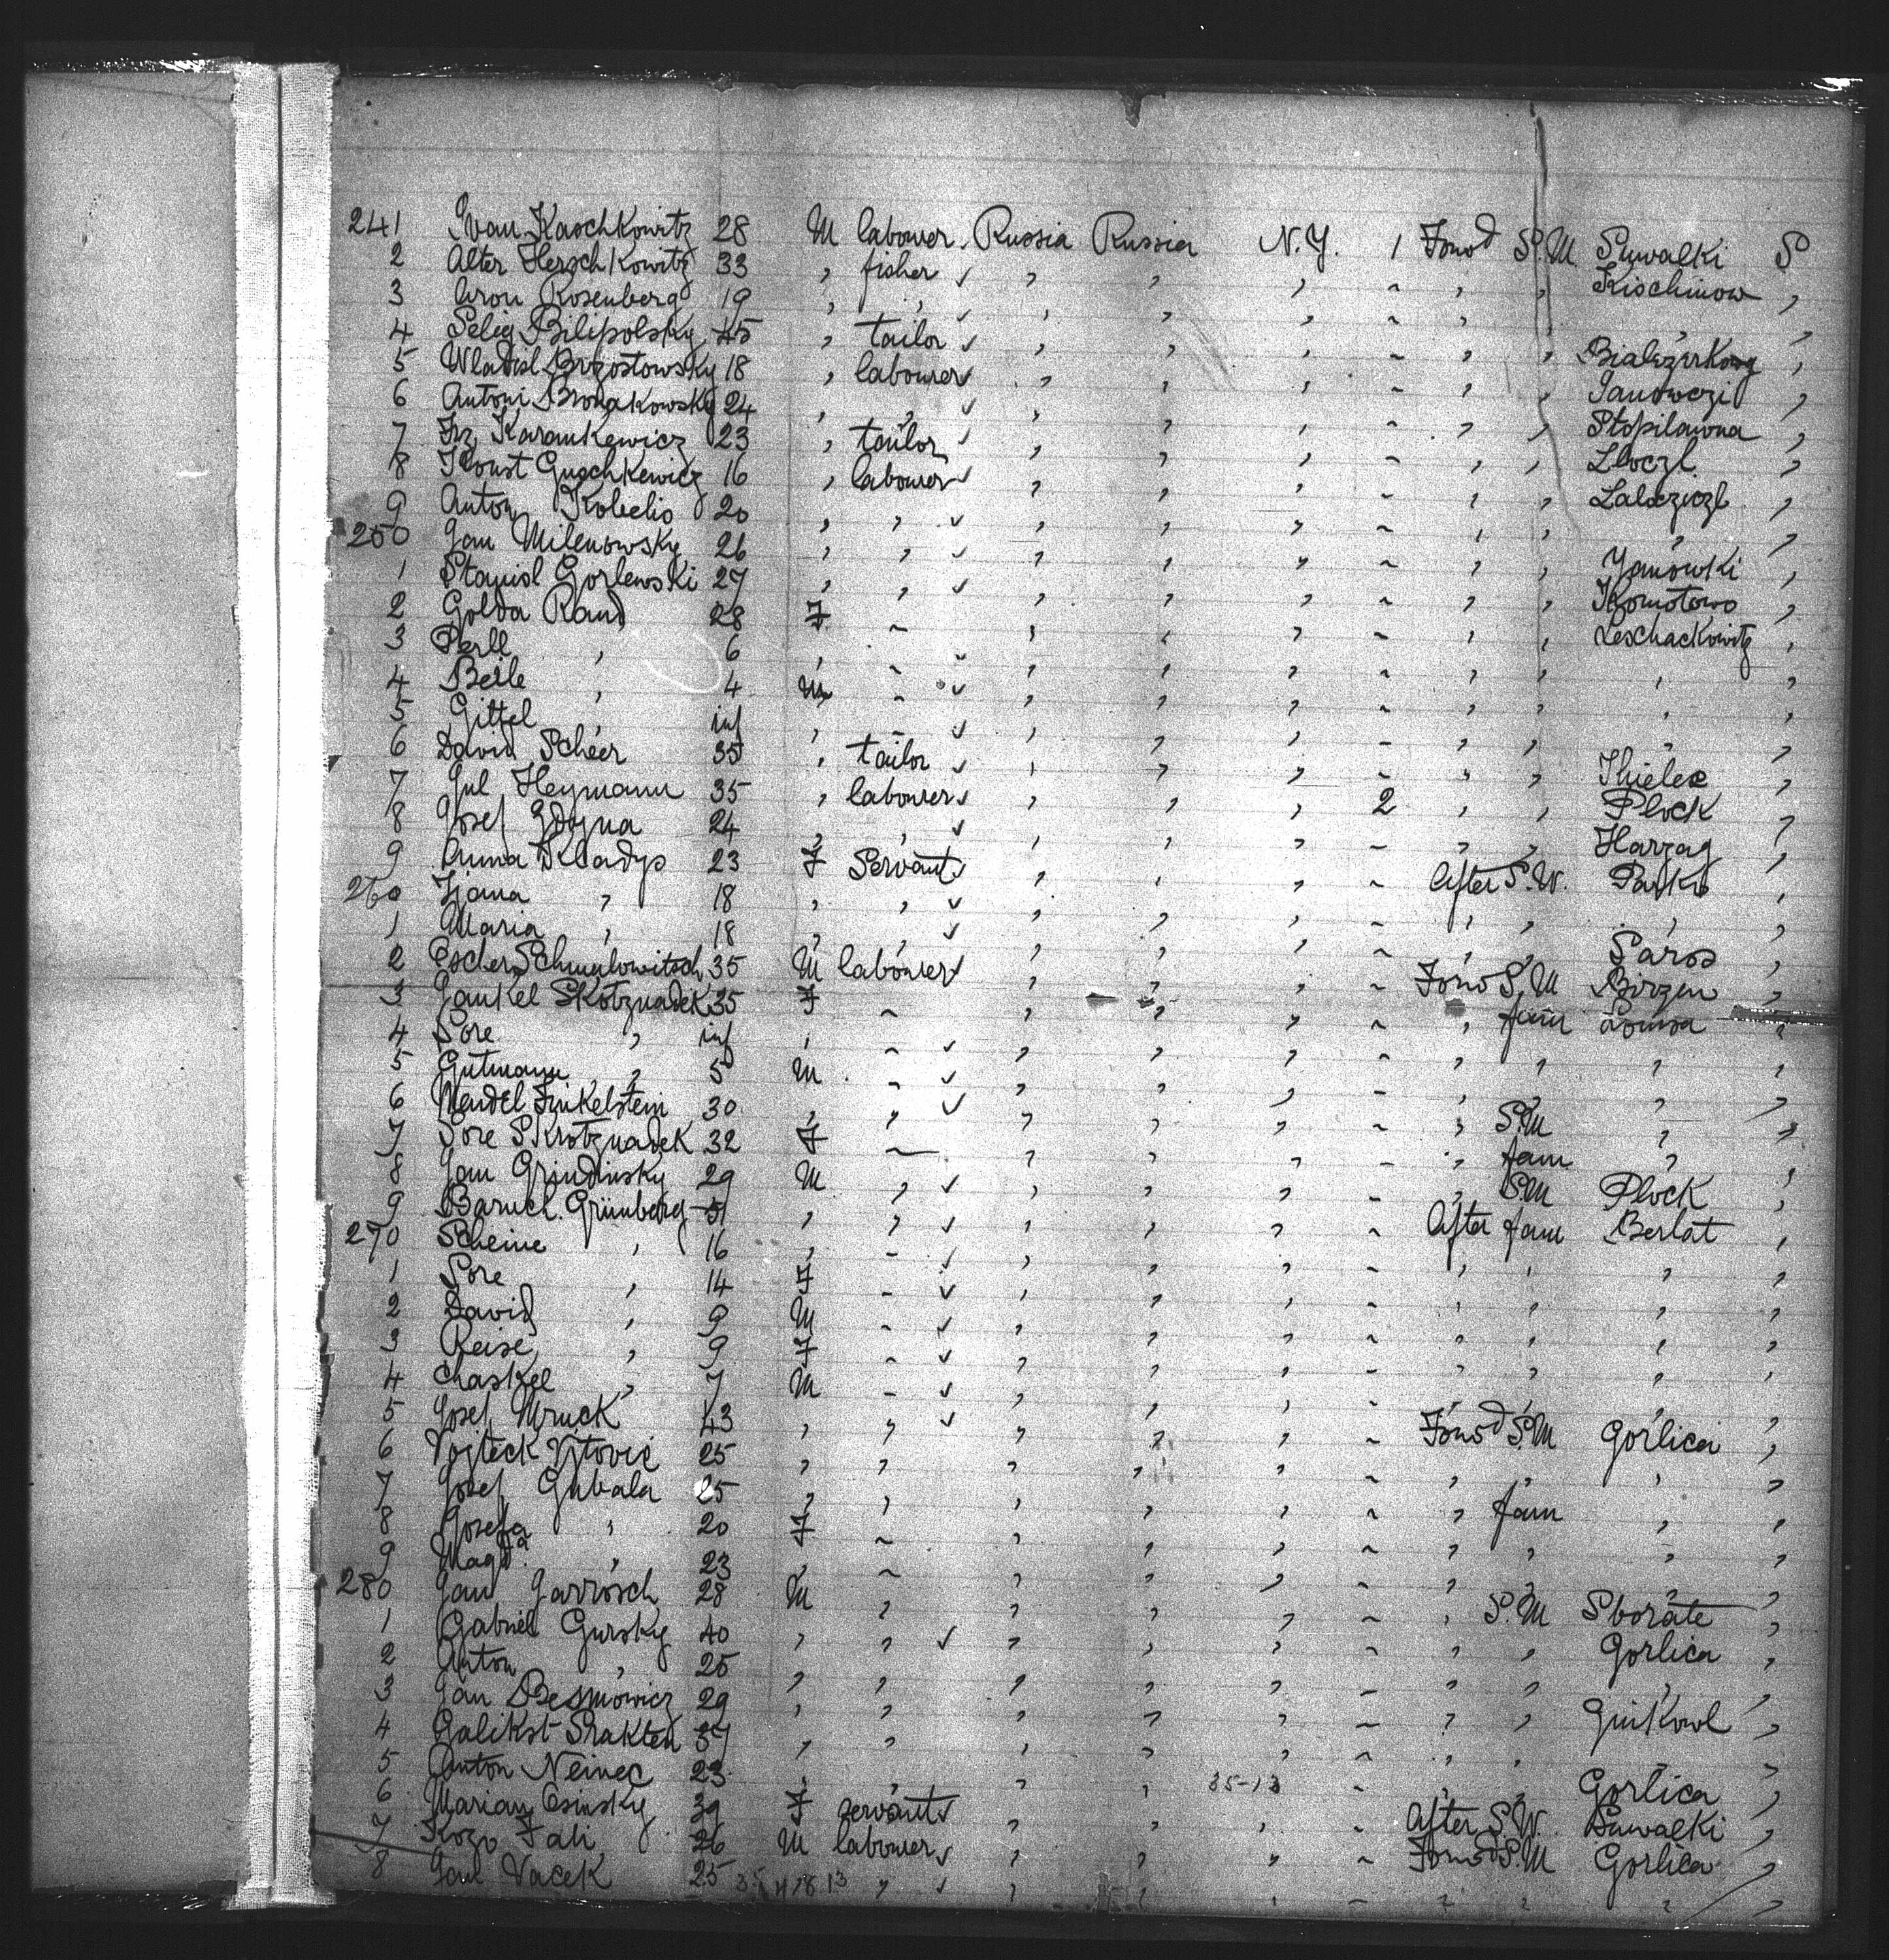 241 Ivan Kaschkowitz 28 M labourer Russia Russia N.Y. 1 Forwd S.M. Suwalki S
2 Alter Herschkowitz 33 " fisher " " " " " " Kischinow "
3 Aron Rosenberg 19 " " " " " " " " " "
4 Selig Bilipolsky 45 " tailor " " " " " " "
5 Wladisl Brzostowsky 18 " labourer " " " " " " "
6 Antoni 24 " " " " " " " " Janowczi "
7 Karankewicz 23 " tailor " " " " " " "
8 Konst Guschkewicz 16 " labourer " " " " " " "
9 Anton Kobelis 20 " " " " " " " " " "
250 Jan Milenowsky 26 " " " " " " " " Janowki "
1 Stanisl Gorlewski 27 " " " " " " " " Komotowo "
2 Golda Rand 28 F - " " " " " " Leschackowitz "
3 Perll " 6 " - " " " " " " " "
4 Beile " 4 M - " " " " " " " "
5 Gittel " inf " - " " " " " " " "
6 David Scheer 35 " tailor " " " " " " "
7 Jul Heymann 35 " labourer " " " 2 " " Plock "
8 Josef 24 " " " " " " " " Harzag "
9 Anna Kladys 23 F Servant " " " " After S.W. "
260 " 18 " " " " " " " " " "
1 Maria " 18 " " " " " " " " Saros "
2 Escher Schmulowitsch 35 M labourer " " " " Forwd S.M Birzen "
3 Jankel Skotznadek 35 F - " " " " " fam Lomsa "
4 Sore " inf " - " " " " " " " "
5 Gutmann " 5 M - " " " " " " " "
6 Mendel Finkelstein 30 " " " " " " " S.M " "
7 Sore Skrotznadek 32 F - " " " " " fam " "
8 Jan Grindinsky 29 M " " " " " " S.M Plock "
9 Baruch Grünberg 51 " " " " " " After fam Berlat "
270 Scheine " 16 " - " " " " " " " "
1 Sore " 14 F - " " " " " " " "
2 David " 9 M - " " " " " " " "
3 Reise " 9 F - " " " " " " " "
4 Chaskel " 7 M - " " " " " " " "
5 Josef Mruck 43 " " " " " " Forwd S.M Gorlica "
6 Vojteck Vitovic 25 " " " " " " " " " "
7 Josef Gubala 25 " " " " " " " fam " "
8 Josefa " 20 F - " " " " " " " "
9 Magda " 23 " - " " " " " " " "
280 Jan Jarrosch 28 M " " " " " " S.M Sborate "
1 Gabriel Gursky 40 " " " " " " " " Gorlica "
2 Anton " 25 " " " " " " " " " "
3 Jan Besmowicz 29 " " " " " " " " Ginkowl "
4 Galikst 37 " " " " " " " " " "
5 Anton Neinec 23 " " " " 35-13 " " " Gorlica "
6 Marian Osinsky 39 F servant " " " " After S.W. Suwalki "
7 Kozo Fali 26 M labourer " " " " Forwd S.M Gorlica "
8 Jan Vacek 25 " " " " " " " " " "